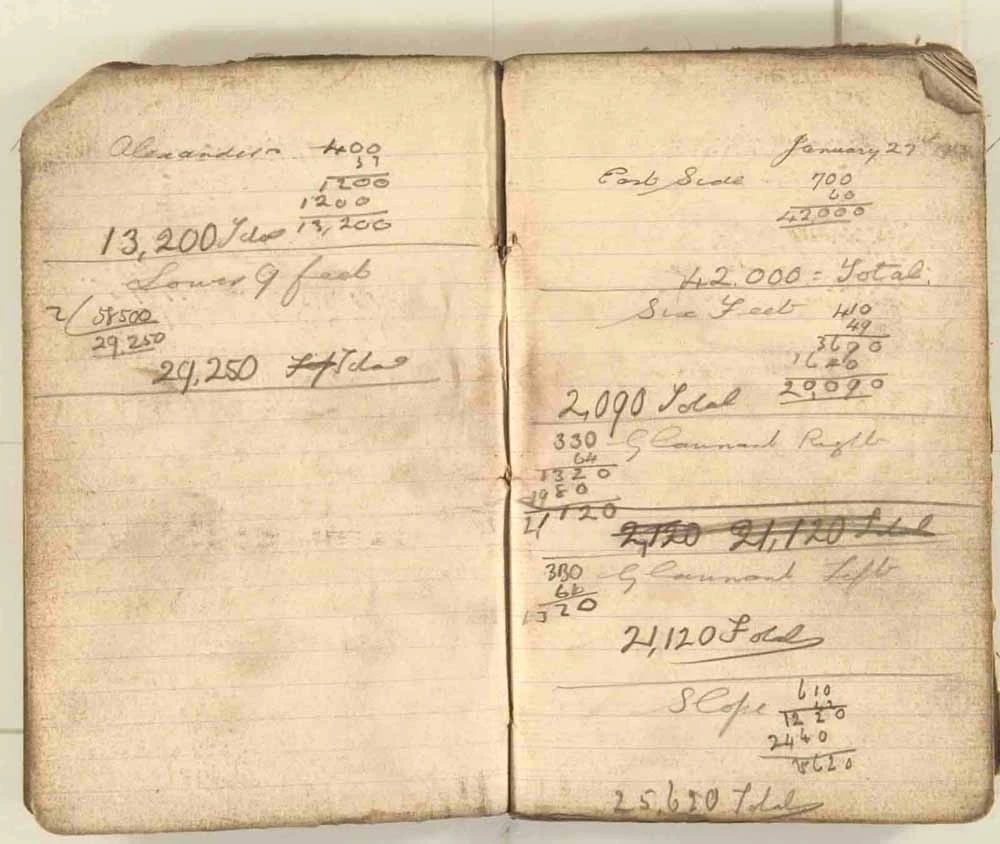 Alexander 400
37
1200
1200
13,200
13,200 Total
Lower 9 feet
2/58500
29,250
29,250 Total
January 27th
East Side 700
60
42000
42.000 = Total.
Six Feet 410
49
3690
1640
20,090
2,090 Total
330 Glannant Right
64
1320
1980
21120
2,120 21,120 Total
330 Glannant Left
64
1320
21,120 Total
Slope 610
42
1220
2440
5620
25,620 Total